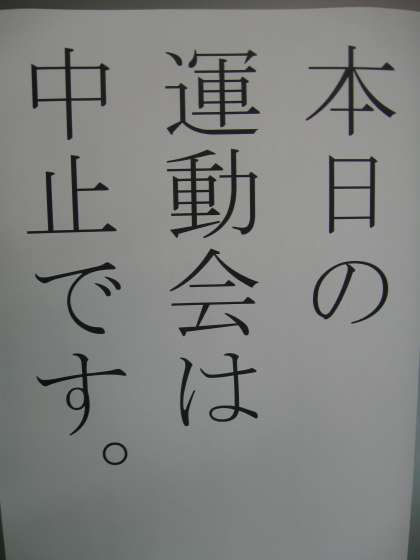 本日の
運動会は
中止です。